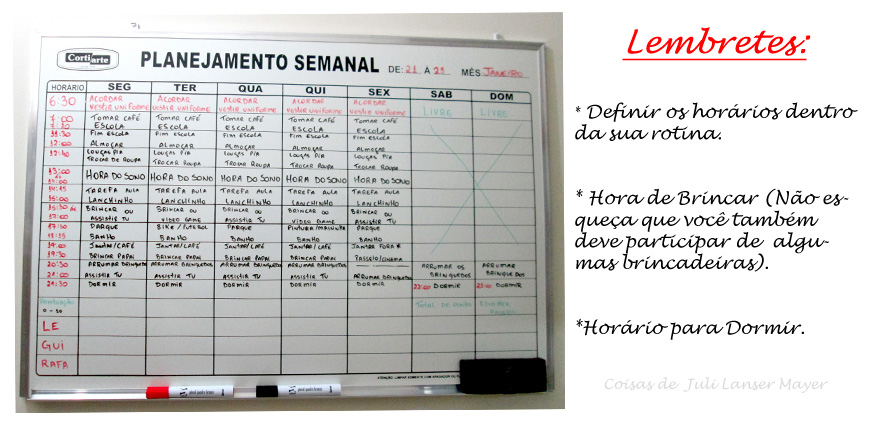 Cortiarte
PLANEJAMENTO SEMANAL DE: 21 À 25 MÊS: JANEIRO
HORÁRIO SEG TER QUA QUI SEX SAB DOM
6:30 ACORDAR ACORDAR ACORDAR ACORDAR ACORDAR
VESTIR UNIFORME VESTIR UNIFORME VESTIR UNIFORME VESTIR UNIFORME VESTIR UNIFORME LIVRE LIVRE
7:00 TOMAR CAFÉ TOMAR CAFÉ TOMAR CAFÉ TOMAR CAFÉ TOMAR CAFÉ
7:30 ESCOLA ESCOLA ESCOLA ESCOLA ESCOLA
11:30 FIM ESCOLA FIM ESCOLA FIM ESCOLA FIM ESCOLA FIM ESCOLA
12:00 ALMOÇAR ALMOÇAR ALMOÇAR ALMOÇAR ALMOÇAR
LOUÇAS PIA LOUÇAS PIA LOUÇAS PIA LOUÇAS PIA LOUÇAS PIA
TROCAR DE ROUPA TROCAR ROUPA TROCAR ROUPA TROCAR ROUPA TROCAR ROUPA
13:00 HORA DO SONO HORA DO SONO HORA DO SONO HORA DO SONO HORA DO SONO
TAREFA AULA TAREFA AULA TAREFA AULA TAREFA AULA TAREFA AULA
LANCHINHO LANCHINHO LANCHINHO LANCHINHO LANCHINHO
BRINCAR OU BRINCAR OU BRINCAR OU BRINCAR OU BRINCAR OU
17:00 ASSISTIR TV VIDEO GAME ASSISTIR TV VIDEO GAME ASSISTIR TV
17:30 PARQUE BIKE / FUTEBOL PARQUE PINTURA/MASSINHA PARQUE
18:35 BANHO BANHO BANHO BANHO BANHO
19:00 JANTAR/CAFÉ JANTAR/CAFÉ JANTAR/CAFÉ JANTAR/CAFÉ JANTAR FORA
19:30 BRINCAR PAPAI BRINCAR PAPAI BRINCAR PAPAI BRINCAR PAPAI PASSEIO/CINEMA
20:30 ARRUMAR BRINQUEDOS ARRUMAR BRINQUEDOS ARRUMAR BRINQUEDOS ARRUMAR BRINQUEDOS ARRUMAR OS BRINQUEDOS ARRUMAR BRINQUEDOS
21:00 ASSISTIR TV ASSISTIR TV ASSISTIR TV ASSISTIR TV
21:30 DORMIR DORMIR DORMIR DORMIR DORMIR 22:00 DORMIR DORMIR
PONTUAÇÃO TOTAL DE PONTOS
0 - 10
LE
GUI
RAFA
Lembretes:
* Definir os horários dentro
da sua rotina.
* Hora de Brincar (Não es-
queça que você também
deve participar de algu-
mas brincadeiras).
*Horário para Dormir.
Coisas de Juli Lanser Mayer